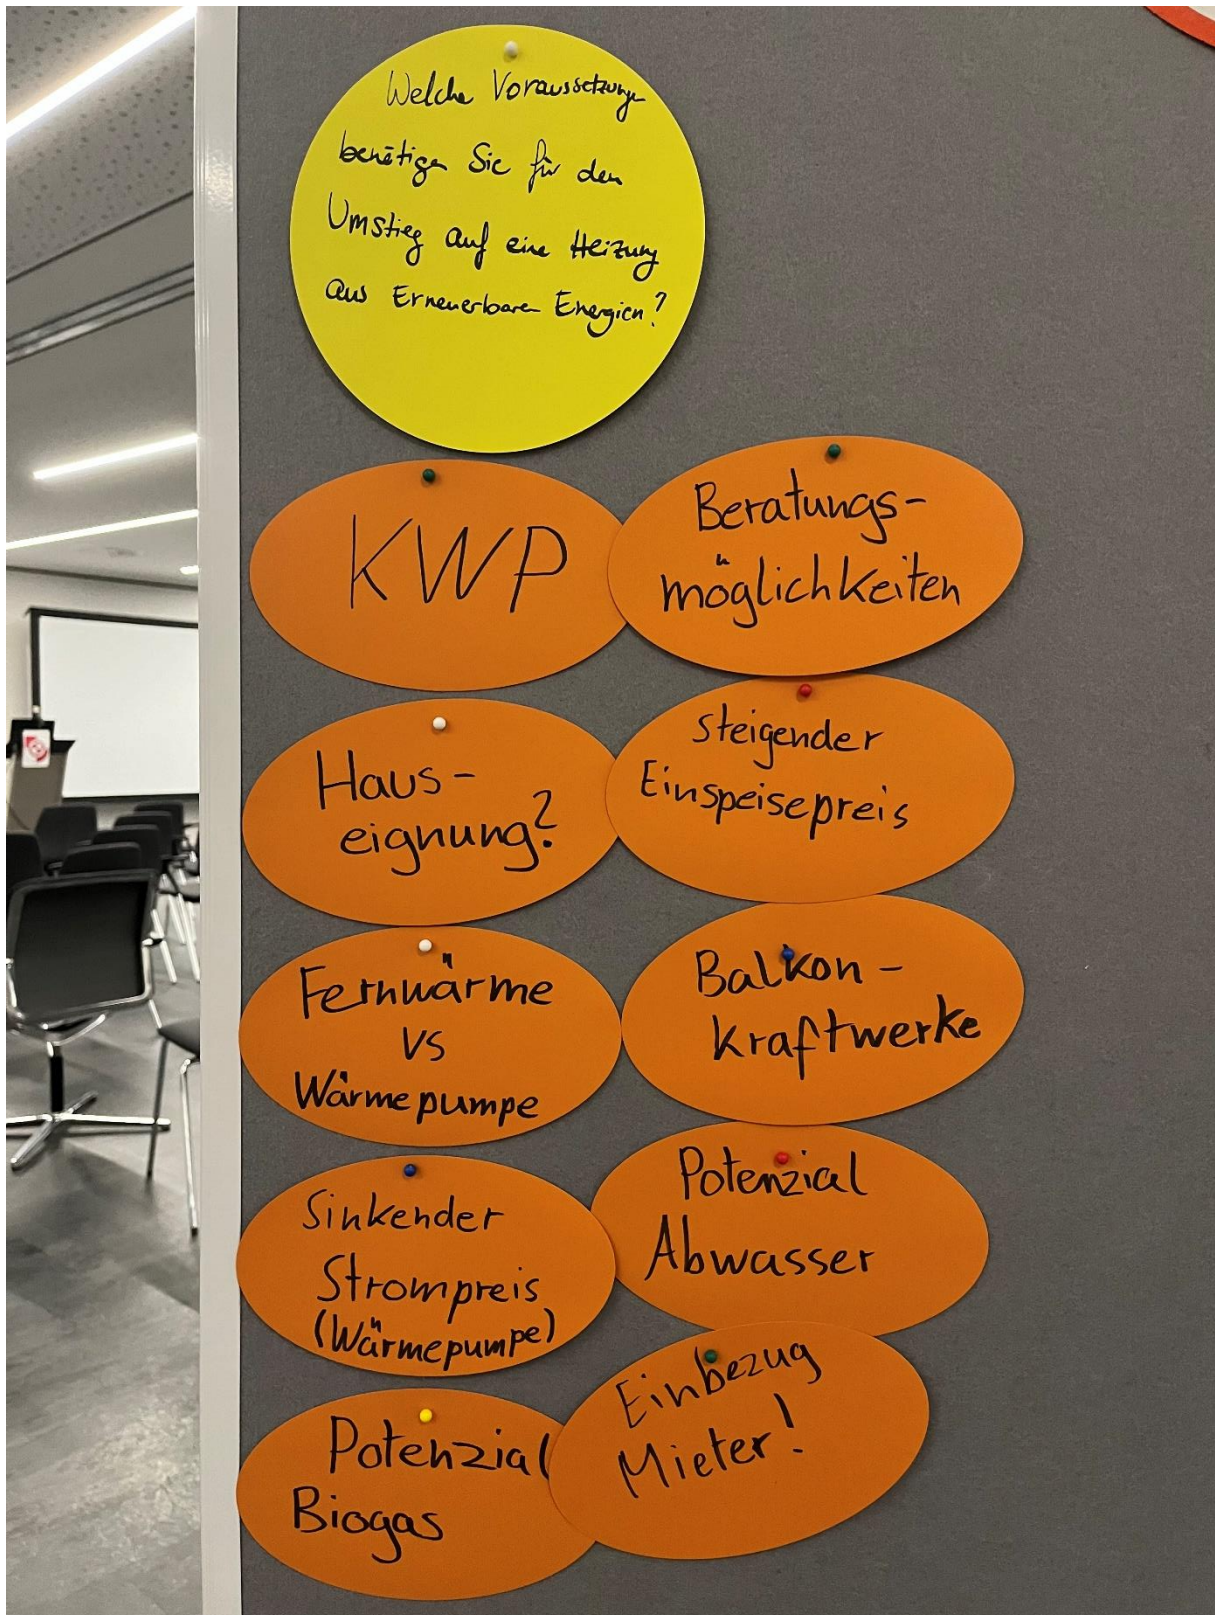 Welche Voraussetzungen
benötigen Sie für den
Umstieg auf eine Heizung
aus Erneuerbaren Energien?
KWP
Beratungs-
möglichkeiten
Haus-
eignung?
steigender
Einspeisepreis
Fernwärme
vs
Wärmepumpe
Balkon-
kraftwerke
Sinkender
Strompreis
(Wärmepumpe)
Potenzial
Abwasser
Potenzial
Biogas
Einbezug
Mieter!